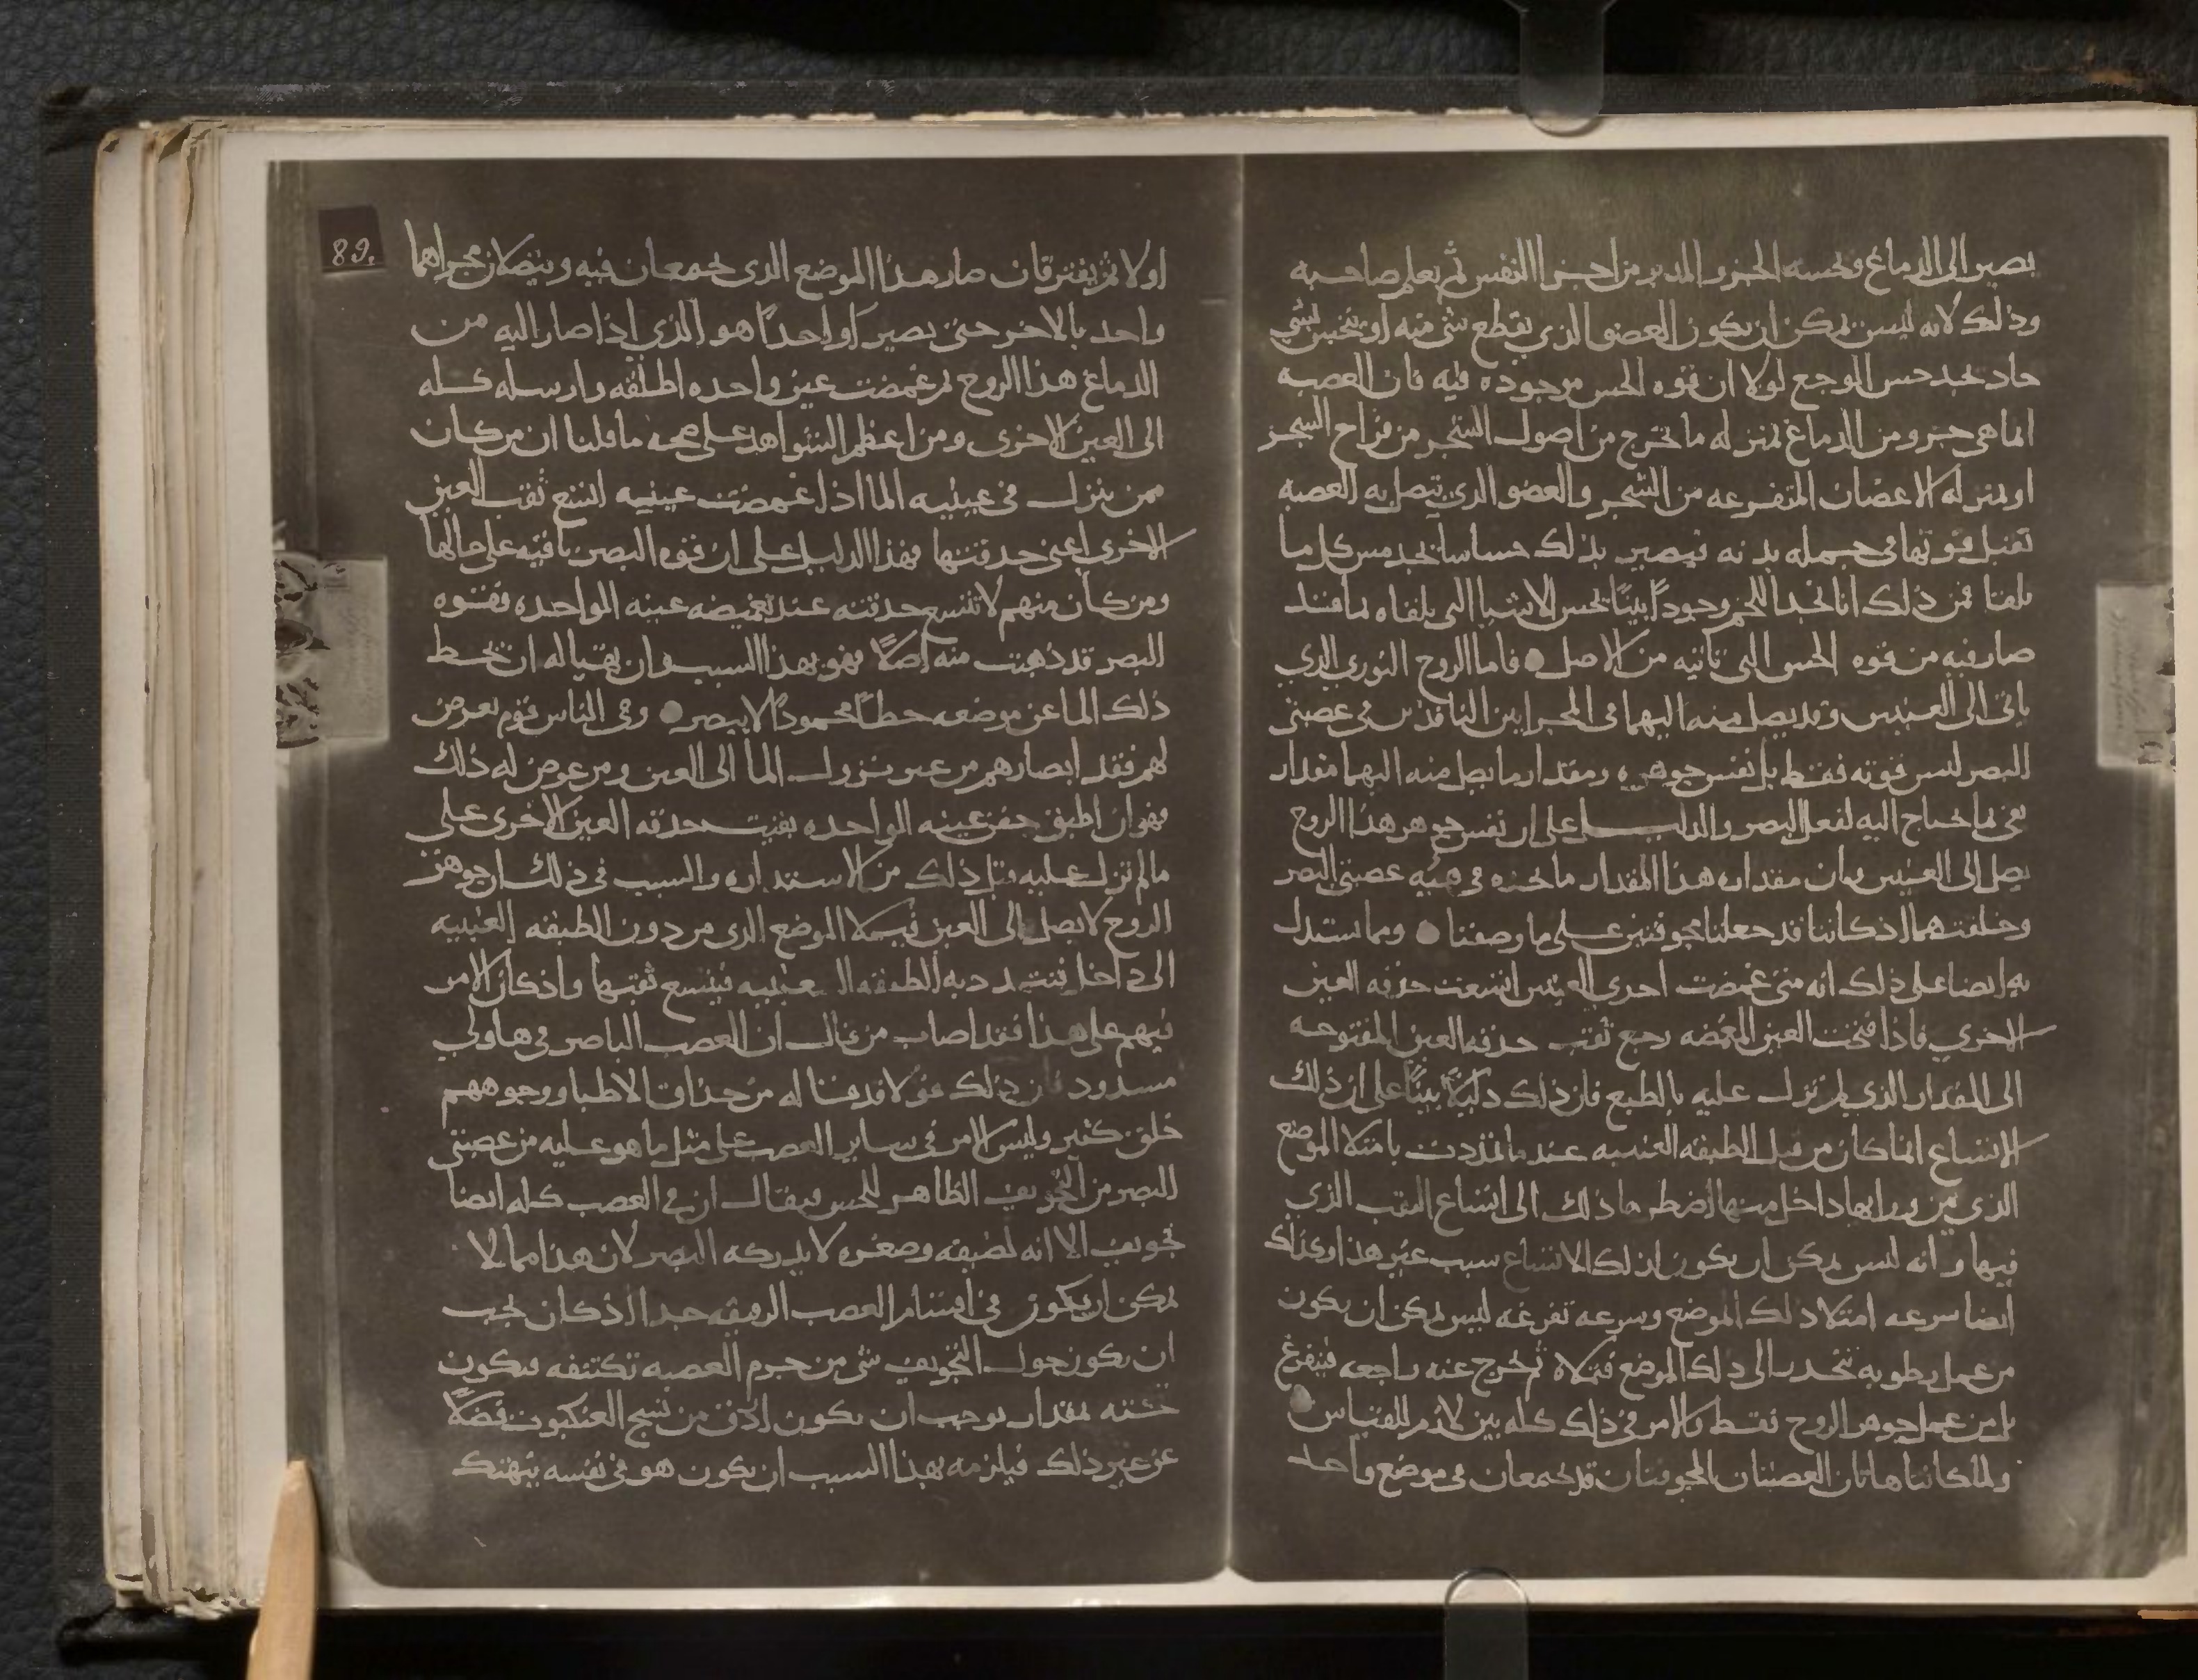 يصير الى الدماغ ويحسه الجزو المدبر من اجزا النفس لم يعلم صاحبه
وذلك لانه ليس يمكن ان يكون العضو الذي يقطع شي منه او ينخس بشي
حاد يجد حس الوجع لولا ان قوه الحس موجوده فيه فان العصبه
انما هي جزو من الدماغ بمنزله ما يخرج من اصول الشجر من
او بمنزله الاغصان المتفرعه من الشجر والعضو الذي تتصل به العصبه
تقبل قوتها في جمله بدنه فيصير بذلك حساسا يجد مس كل ما
يلقا فمن ذلك انا نجد اللحم وجودا بينا يحس الاشيا التي يلقاه بما قد
صار فيه من قوه الحس التي تاتيه من الاصل فاما الروح النوري الذي
ياتي الى العينين وقد يصل منه اليهما في المجرايين النافذين في عصبتي
البصر ليس قوته فقط بل نفس جوهره ومقدار ما يصل منه اليهما مقدار
يفي بما احتاج اليه لفعل البصر والدليل على ان نفس جوهر هذا الروح
يصل الى العينين وان مقداره هذا المقدار ما نجده في هيئه عصبتي البصر
وخلقتهما اذ كانتا قد جعلتا مجوفتين على ما وصفنا ومما يستدل
به ايضا على ذلك انه متى غمضت احدى العينين اتسعت حدقه العين
الاخرى فاذا فتحت العين المغمضه رجع ثقب حدقه العين المفتوحه
الى المقدار الذي لم تزل عليه بالطبع فان ذلك دليلا بينا على ان ذلك
الاتساع انما كان من قبل الطبقه العنبيه عندما تمددت بامتلا الموضع
الذي من ورايها داخل منها اضطرها ذلك الى اتساع الثقب الذي
فيها وانه ليس يمكن ان يكون لذلك الاتساع سبب غير هذا وكذلك
ايضا سرعه امتلا ذلك الموضع وسرعه تفرغه ليس يمكن ان يكون
من عمل رطوبه تنحدر الى ذلك الموضع فتملاه ثم تخرج عنه راجعه فيتفرغ
بل من عمل جوهر الروح فقط والامر في ذلك كله بين لازم للقياس
ولما كانتا هاتان العصبتان المجوفتان قد تجمعان في موضع واحد
89.
اولا ثم يفترقان صار هذا الموضع الذي تجمعان فيه ويتصلان مجراهما
واحد بالاخر حتى يصيرا واحدا هو الذي اذا صار اليه من
الدماغ هذا الروح ثم غمضت عين واحده اطلقه وارسله كله
الى العين الاخرى ومن اعظم الشواهد على صحه ما قلنا ان من كان
ممن ينزل في عينيه الما اذا غمضت عينيه اتسع ثقب العين
الاخرى اعني حدقتها فهذا الدليل على ان قوه البصر باقيه على حالها
ومن كان منهم لا تتسع حدقته عند تغميضه عينه الواحده فقوه
البصر قد ذهبت منه اصلا فهو بهذا السبب وان تهيا له ان تحط
ذلك الما عن موضعه حطا محمودا لا يبصر وفي الناس قوم يعرض
لهم فقد ابصارهم من غير نزول الما الى العين ومن عرض له ذلك
فهو ان اطبق جفن عينه الواحده بقيت حدقه العين الاخرى على
ما لم تزل عليه قبل ذلك من الاستداره والسبب في ذلك ان جوهر
الروح لا يصل الى العين فيملا الموضع الذي من دون الطبقه العنبيه
الى داخل فتتمدد به الطبقه العنبيه فيتسع ثقبها واذ كان الامر
فيهم على هذا فقد اصاب من قال ان العصب الباصر في هاولي
مسدود فان ذلك قولا قد قاله من حذاق الاطبا ووجوههم
خلق كثير وليس الامر في ساير العصب على مثل ما هو عليه من عصبتي
البصر من التجويف الظاهر للحس فيقال ان في العصب كله ايضا
تجويف الا انه لضيقه وصغره لا يدركه البصر لان هذا مما لا
يمكن ان يكون في اقسام العصب الرقيقه جدا اذ كان يجب
ان يكون حول التجويف شي من جرم العصبه تكتنفه فيكون
بمقدار يوجب ان يكون ادق من نسج العنكبوت فضلا
عن غير ذلك فيلزمه بهذا السبب ان يكون هو في نفسه يتهتك